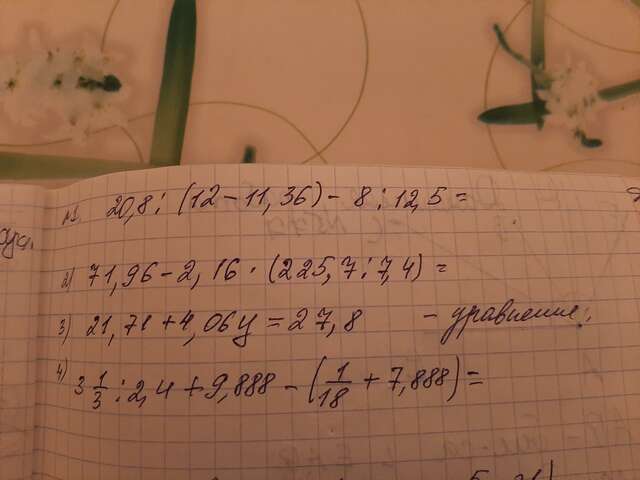 №1. 20,8 : (12 - 11,36) - 8 : 12,5 =
2) 71,96 - 2,16 · (225,7 : 7,4) =
3) 21,71 + 4,06y = 27,8 - уравнение;
4) 3 1/3 : 2,4 + 9,888 - (1/18 + 7,888) =